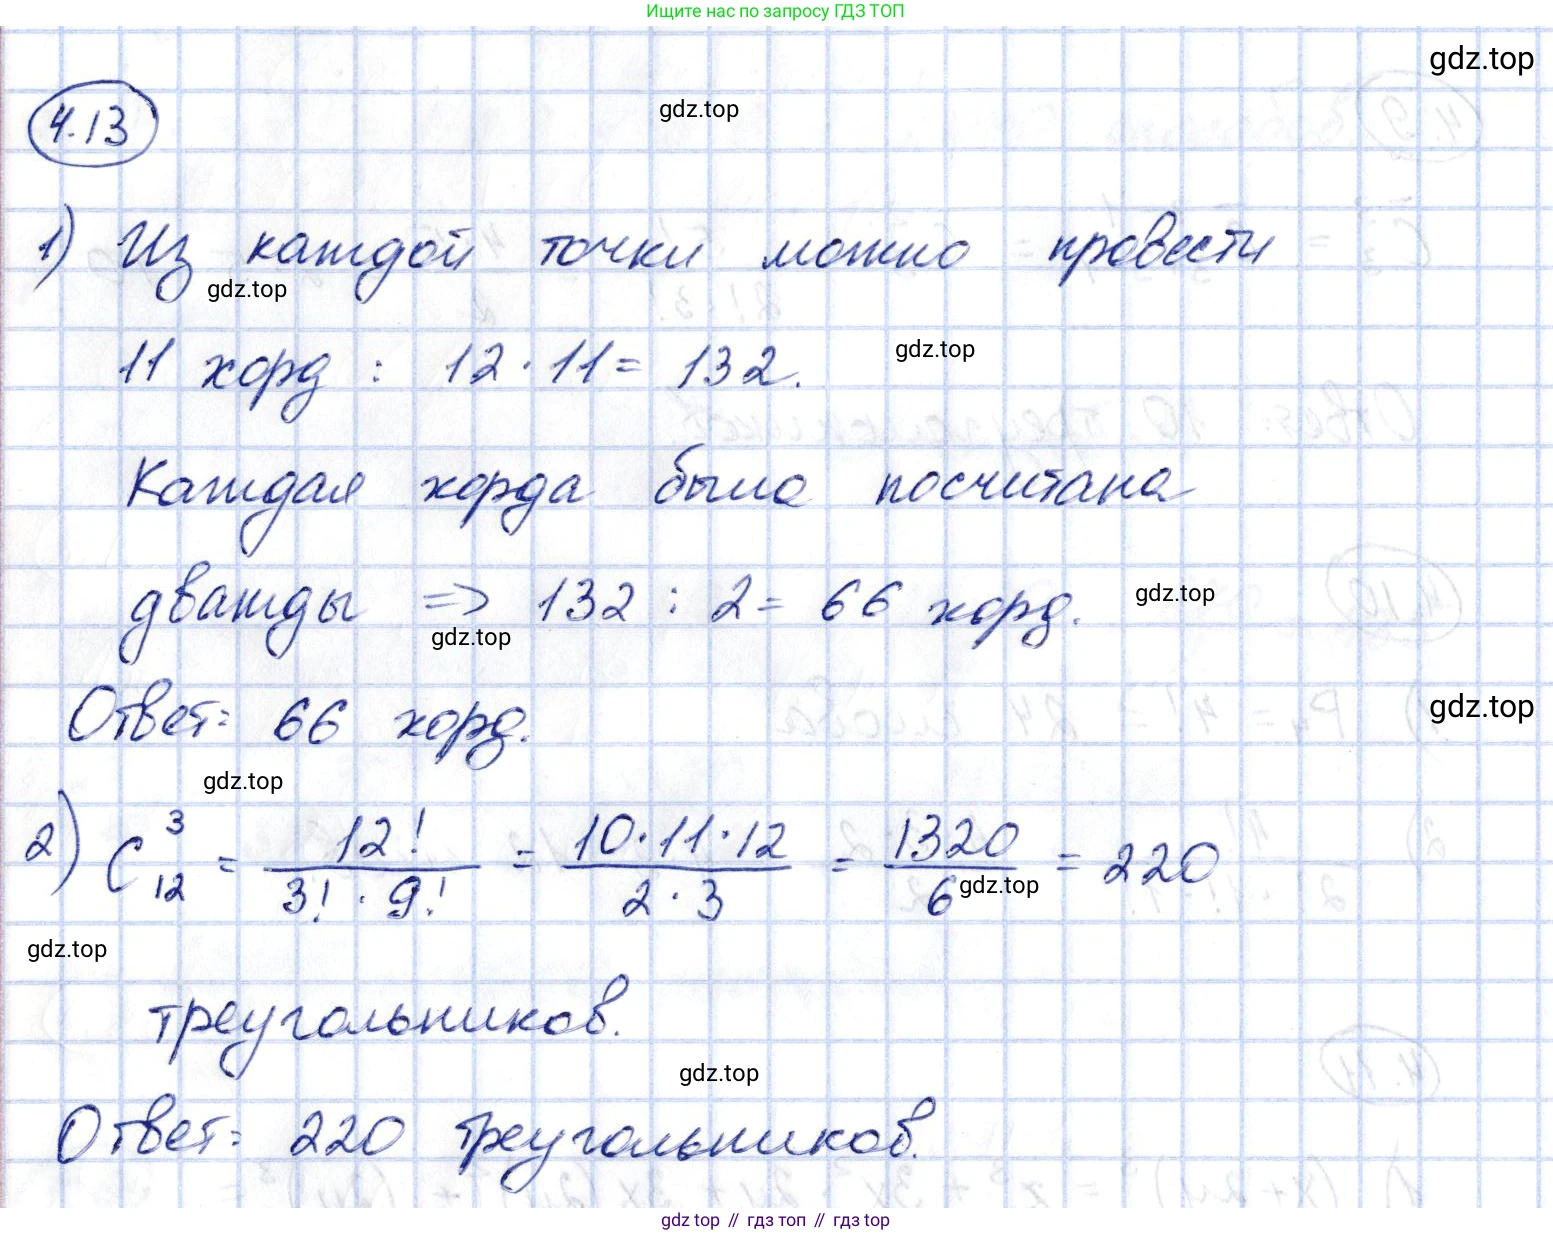 Ищите нас по запросу ГДЗ ТОП
gdz.top
gdz.top
4.13
1) Из каждой точки можно провести
gdz.top
11 хорд : 12 · 11 = 132.
gdz.top
Каждая хорда была посчитана
дважды => 132 : 2 = 66 хорд.
gdz.top
gdz.top
Ответ: 66 хорд.
gdz.top
gdz.top
2) C₁₂³ = 12!/(3! · 9!) = (10·11·12)/(2 · 3) = 1320/6 = 220
gdz.top
gdz.top
треугольников.
gdz.top
Ответ: 220 треугольников.
gdz.top // гдз топ // гдз top